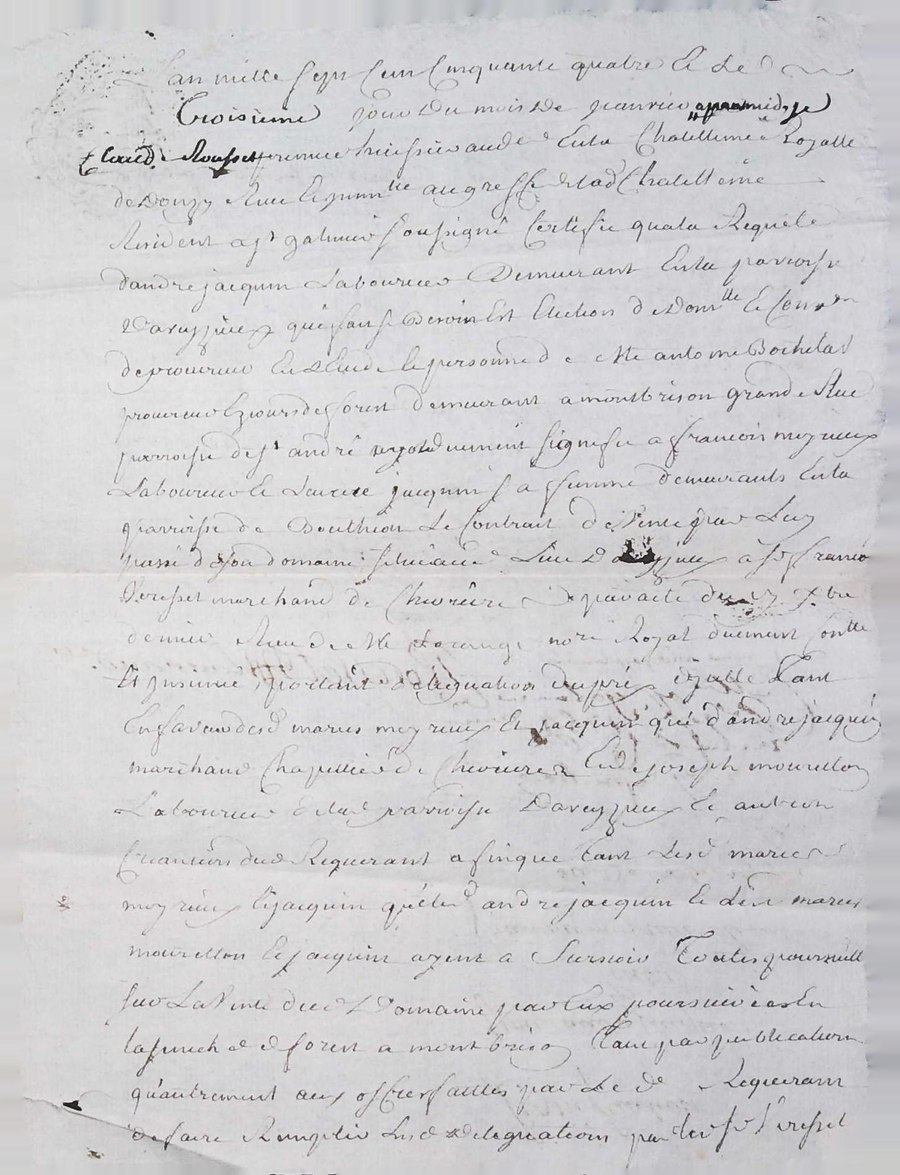 L'an mille sept cent cinquante quatre et le
Troisieme jour du mois de janvier apres midy je
Claude Rousset premier huissier aud en la Chatellenie Royalle
de Donzy au greffe de lad Chatellenie
Resident a st galmier soussigné certifie qu'a la Requete
d'andre jacquin Laboureur Demeurant en la parroisse
D'aveyzieux qui fait Election de Dom.lle et
de procureur en l'etude et personne de Me antoine Bochetal
procureur es cours de forest demeurant a montbrison grande Rue
parroisse de st andré signifié a francois meyrieux
Laboureur et jacquin sa femme demeurants en la
parroisse de Bouthion Le Contrat de Vente par Luy
passé de son domaine situé au Lieu a sr francois
Verisset marchand de Chevrière du 17 Xbre
dernier Receu Me nore Royal duement contlle
Et insinué portant delegation du prix d'iyelle tant
En faveur desd maries meyrieux Et jacquin que d'andre jacquin
marchand Chapellier de Chevrieres et de joseph mourellon
Laboureur de lad parroisse D'aveyzieux et autres
Creanciers dud Requerant afin que tant lesd maries
meyrieux Et jacquin que led andre jacquin et lesd maries
mourellon et jacquin ayent a surseoir Toutes poursuittes
sur La Vente dud Domaine par Eux poursuivies En
la senechd de forest a montbrison tant par publication
qu'autrement aux offres faittes par Le d Requerant
de faire Remplir lesd delegations par led sr Verisset